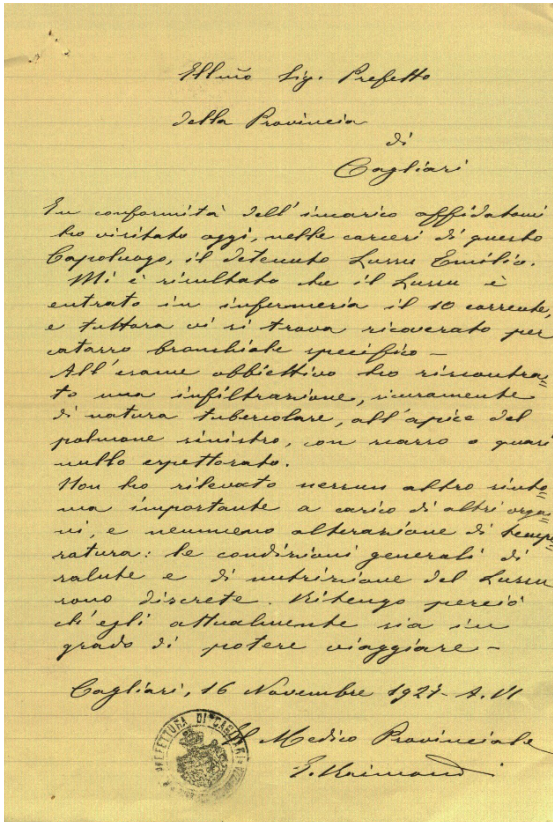 Illmo Sig. Prefetto
della Provincia
di
Cagliari
In conformità dell'incarico affidatomi
ho visitato oggi, nelle carceri di questo
Capoluogo, il detenuto Lussu Emilio.
Mi è risultato che il Lussu è
entrato in infermeria il 10 corrente,
e tuttora vi si trova ricoverato per
catarro bronchiale specifico -
All'esame obbiettivo ho riscontra=
to una infiltrazione, sicuramente
di natura tubercolare, all'apice del
polmone sinistro, con scarso o quasi
nullo espettorato.
Non ho rilevato nessun altro sinto=
ma importante a carico di altri orga=
ni, e nemmeno alterazione di tempe=
ratura: le condizioni generali di
salute e di nutrizione del Lussu
sono discrete. Ritengo perciò
ch'egli attualmente sia in
grado di potere viaggiare -
Cagliari, 16 Novembre 1927 - A. VI
Il Medico Provinciale
PREFETTURA DI CAGLIARI